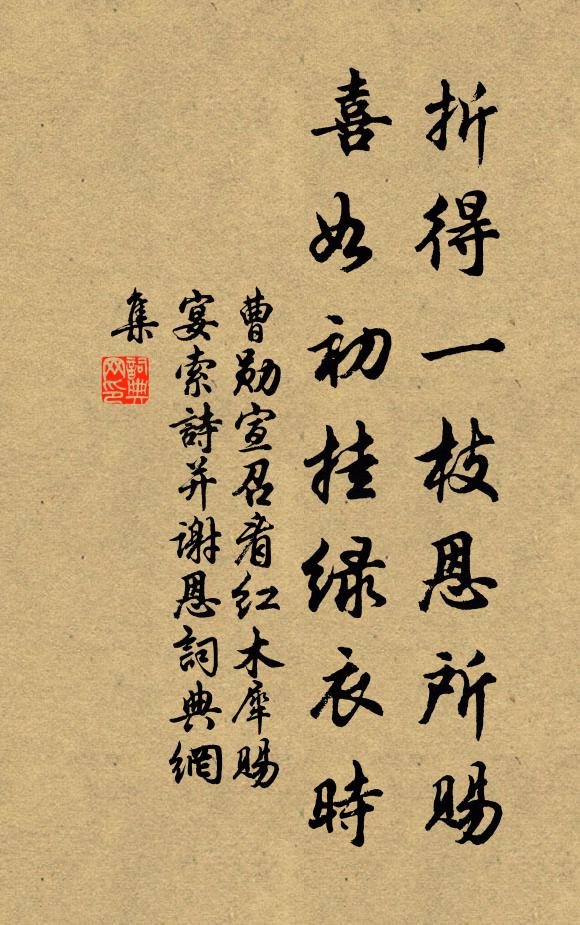 折得一枝恩所赐
喜如初挂绿衣时
曹勋宣召看红木犀赐
宴索詩并谢恩詞典網
集
詞典
网印